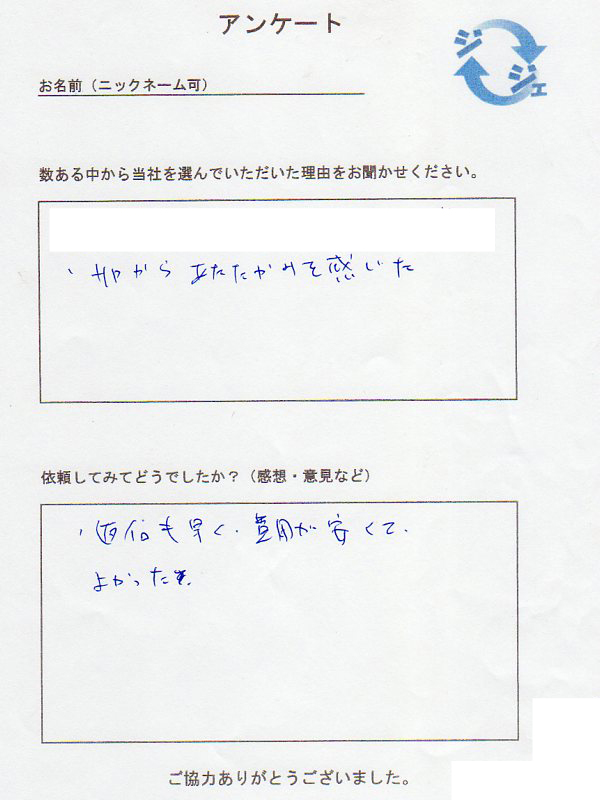 アンケート
ジジェ
お名前（ニックネーム可）
数ある中から当社を選んでいただいた理由をお聞かせください。
・HPから あたたかみを感じた
依頼してみてどうでしたか？（感想・意見など）
・返信も早く、費用が安くて、
よかった。
ご協力ありがとうございました。